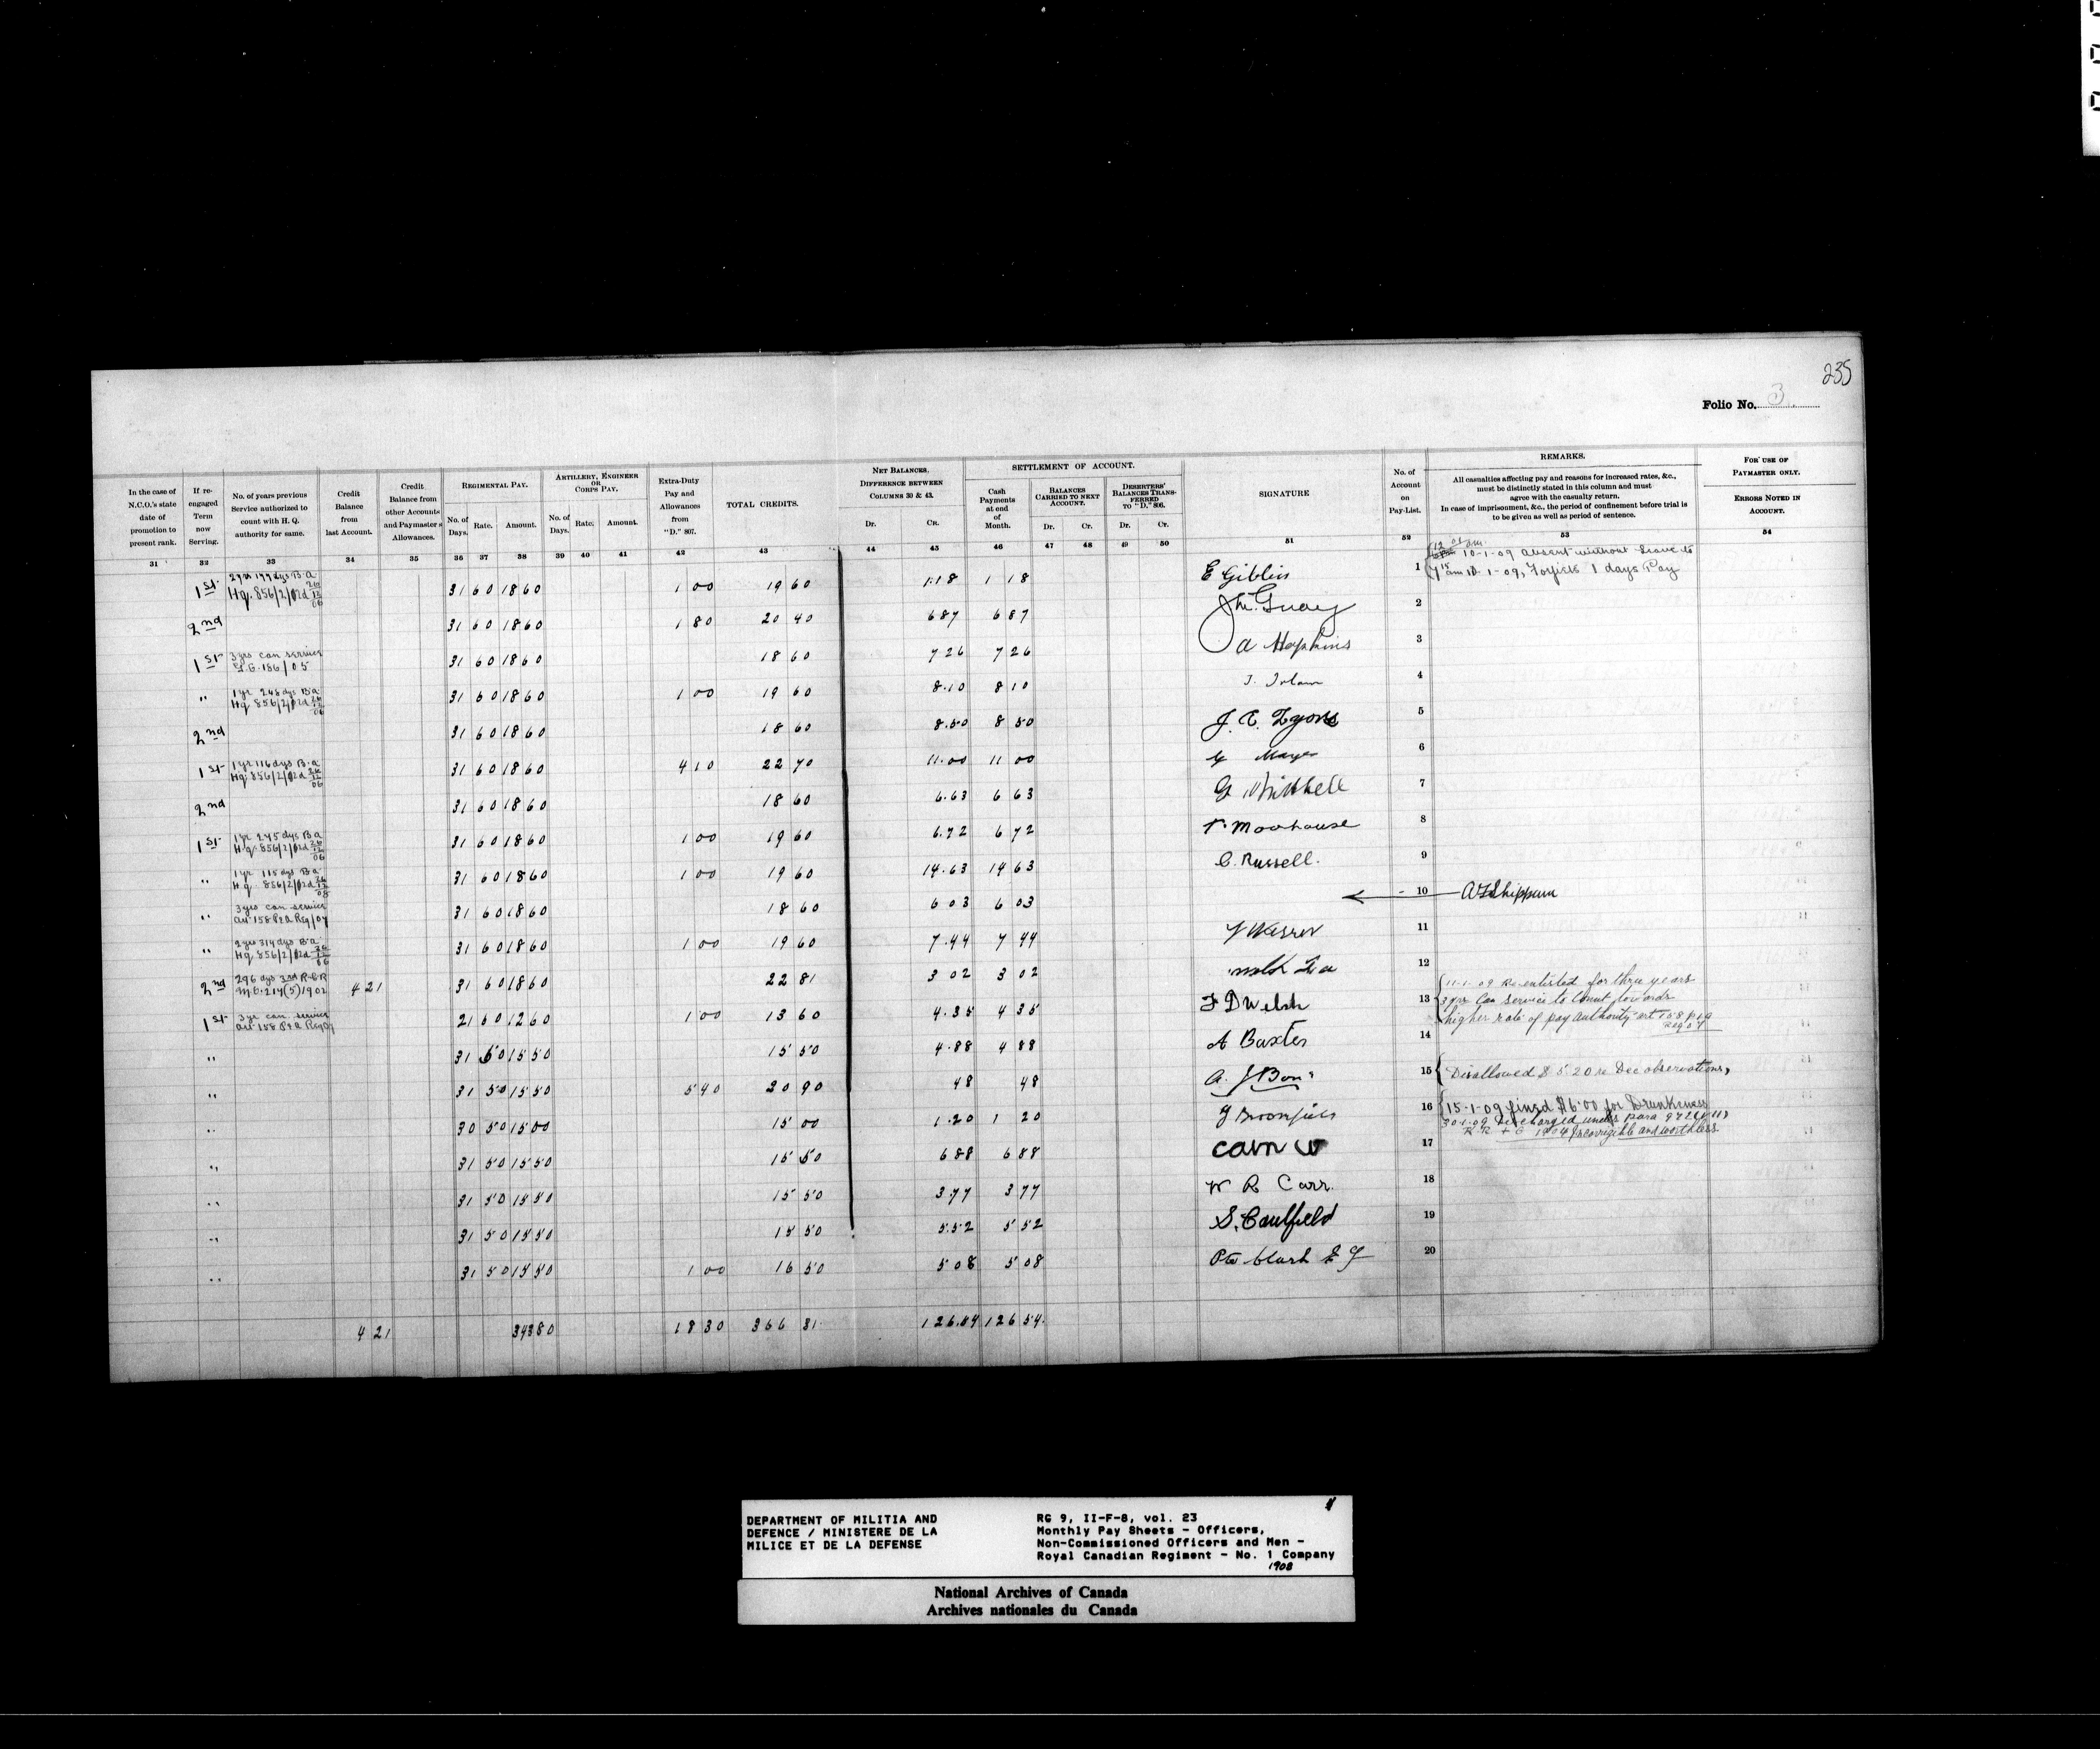 235
Folio No. 3.
In the case of N.C.O.'s state date of promotion to present rank.
If re-engaged Term now Serving.
No. of years previous Service authorized to count with H. Q. authority for same.
Credit Balance from last Account.
Credit Balance from other Accounts and Paymaster's Allowances.
REGIMENTAL PAY.
No. of Days. Rate. Amount.
ARTILLERY, ENGINEER OR CORPS PAY.
No. of Days. Rate. Amount.
Extra-Duty Pay and Allowances from "D." 807.
TOTAL CREDITS.
NET BALANCES. DIFFERENCE BETWEEN COLUMNS 30 & 43.
Dr. CR.
SETTLEMENT OF ACCOUNT.
Cash Payments at end of Month.
BALANCES CARRIED TO NEXT ACCOUNT.
Dr. Cr.
DESERTERS' BALANCES TRANSFERRED TO "D." 806.
Dr. Cr.
SIGNATURE
No. of Account on Pay-List.
REMARKS.
All casualties affecting pay and reasons for increased rates, &c., must be distinctly stated in this column and must agree with the casualty return.
In case of imprisonment, &c., the period of confinement before trial is to be given as well as period of sentence.
FOR USE OF PAYMASTER ONLY.
ERRORS NOTED IN ACCOUNT.
31 32 33 34 35 36 37 38 39 40 41 42 43 44 45 46 47 48 49 50 51 52 53 54
1st Hq. 856/2/02d 26/12/06 31 60 18 60 1 00 19 60 1.18 1 18 E Giblin 1 10-1-09 absent without leave to 7 15 am 1-09, Forfeits 1 days Pay
2nd 31 60 18 60 1 80 20 40 6 87 6 87 Guay 2
1st 3 yrs can service G.O. 186/05 31 60 18 60 18 60 7 26 7 26 A Hopkins 3
" 1 yr 246 dys B.a Hq 856/2/02d 26/12/06 31 60 18 60 1 00 19 60 8.10 8 10 4
2nd 31 60 18 60 18 60 8.50 8 50 J. C. Lyons 5
1st 1 yr 116 dys B.a Hq. 856/2/02d 26/12/06 31 60 18 60 4 10 22 70 11.00 11 00 6
2nd 31 60 18 60 18 60 6.63 6 63 G Mitchell 7
1st 1 yr 245 dys B a Hq. 856/2/02d 26/12/06 31 60 18 60 1 00 19 60 6.72 6 72 Moorhouse 8
" 1 yr 115 dys B a H.q. 856/2/02d 31 60 18 60 1 00 19 60 14.63 14 63 C. Russell. 9
" 3 yrs can service art 158 P&A Reg/07 31 60 18 60 18 60 6 03 6 03 10 A Shippam
" 2 yrs 314 dys B.a Hq 856/2/02d 31 60 18 60 1 00 19 60 7.44 7 44 11
2nd 296 dys 3rd R.C.R M.O. 214(5)1902 4 21 31 60 18 60 22 81 3 02 3 02 12
1st 3 yr can service art 158 P&A Reg 07 21 60 12 60 1 00 13 60 4.35 4 35 F D Welsh 13 11-1-09 Re-enlisted for three years 3 yrs Can Service to Count towards higher rate of pay authority art 158 P&A Reg 07
" 31 50 15 50 15 50 4.88 4 88 A Baxter 14
" 31 50 15 50 5 40 20 90 48 48 15 Disallowed $ 5.20 re Dec observations,
" 30 50 15 00 15 00 1.20 1 20 16 15-1-09 fined $6.00 for Drunkeness 30-1-09 Discharged under para K.R + O 1904 Incorrigible and worthless
" 31 50 15 50 15 50 6 88 6 88 17
" 31 50 15 50 15 50 3.77 3 77 W R Carr. 18
" 31 50 15 50 15 50 5.52 5 52 S. Caulfield 19
" 31 50 15 50 1 00 16 50 5 08 5 08 Pte Clark 20
4 21 343 80 18 30 366 81 126.54 126 54
DEPARTMENT OF MILITIA AND
DEFENCE / MINISTERE DE LA
MILICE ET DE LA DEFENSE
RG 9, II-F-8, vol. 23
Monthly Pay Sheets - Officers,
Non-Commissioned Officers and Men -
Royal Canadian Regiment - No. 1 Company
1908
National Archives of Canada
Archives nationales du Canada